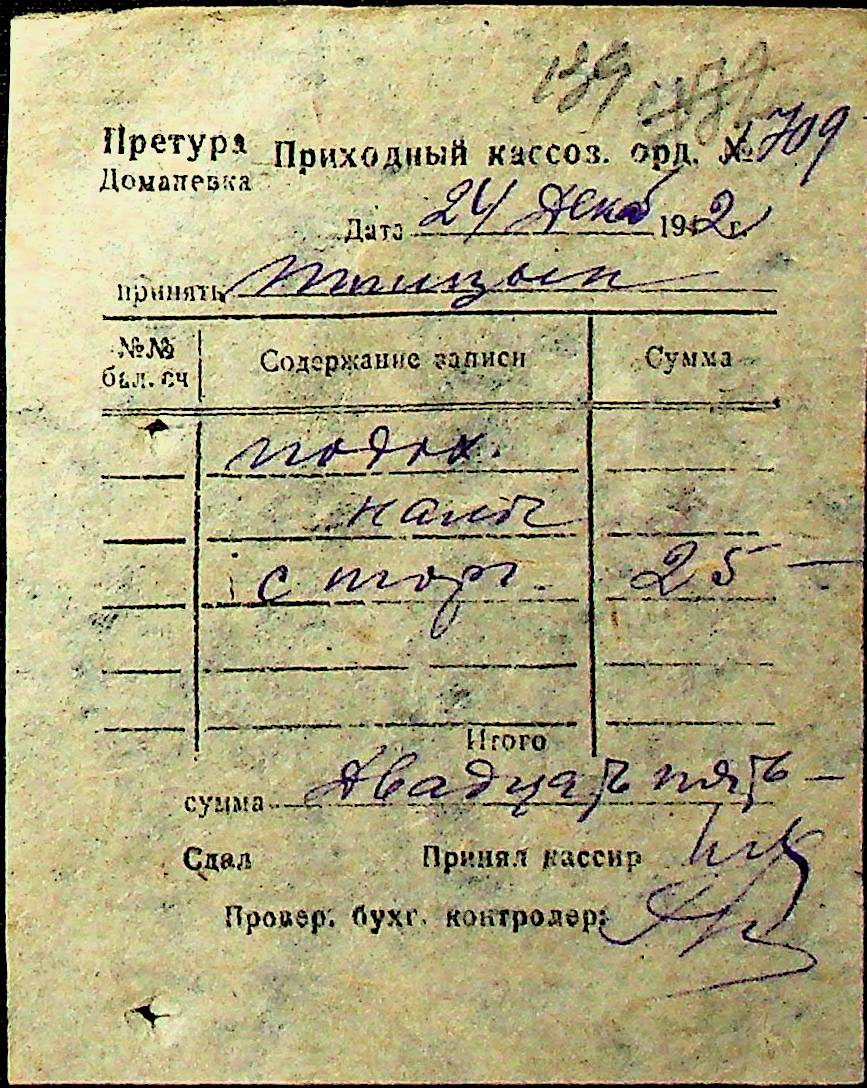 139
Претура Приходный кассов. орд. № 1709
Доманевка
Дата 24 Декаб 1942 г.
принять
№№ бал. сч Содержание записи Сумма
подох.
налог
с торг. 25 —
Итого
сумма Двадцать пять —
Сдал Принял кассир
Провер. бухг. контролер: